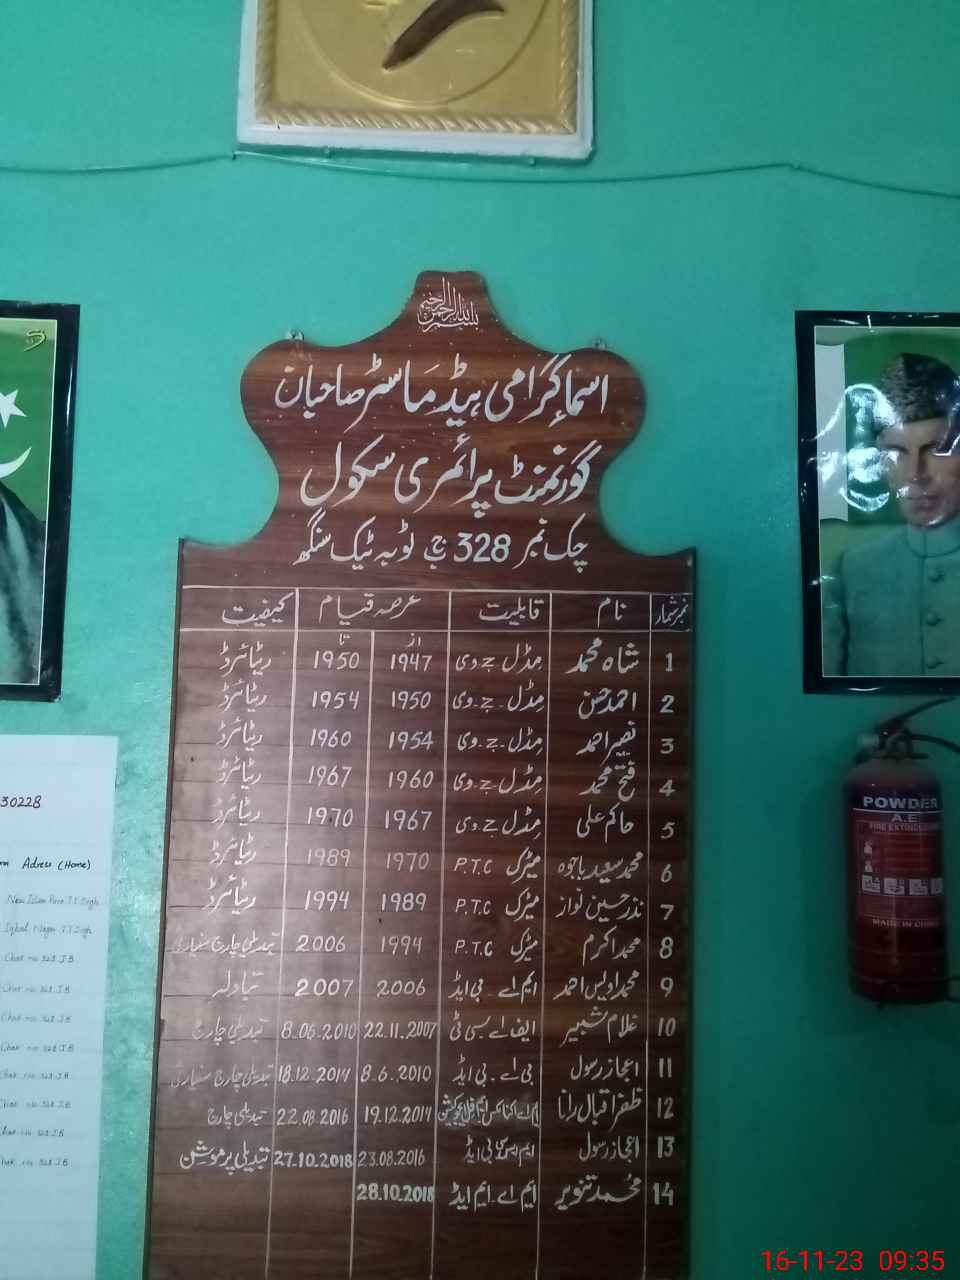 بسم اللہ الرحمن الرحیم
اسماء گرامی ہیڈ ماسٹر صاحبان
گورنمنٹ پرائمری سکول
چک نمبر 328 ج ب ٹوبہ ٹیک سنگھ
نمبر شمار نام قابلیت عرصہ قیام کیفیت
از تا
1 شاہ محمد مڈل جے۔وی 1947 1950 ریٹائرڈ
2 احمد حسن مڈل۔جے۔وی 1950 1954 ریٹائرڈ
3 نصیر احمد مڈل۔جے۔وی 1954 1960 ریٹائرڈ
4 فتح محمد مڈل۔جے۔وی 1960 1967 ریٹائرڈ
5 حاکم علی مڈل جے۔وی 1967 1970 ریٹائرڈ
6 محمد سعید باجوہ میٹرک P.T.C 1970 1989 ریٹائرڈ
7 نذر حسین نواز میٹرک P.T.C 1989 1994 ریٹائرڈ
8 محمد اکرم میٹرک P.T.C 1994 2006 تبدیلی چارج سنیارٹی
9 محمد اویس احمد ایم اے۔بی ایڈ 2006 2007 تبادلہ
10 غلام شبیر ایف اے سی ٹی 22.11.2007 8.06.2010 تبدیلی چارج
11 اعجاز رسول بی اے۔بی ایڈ 8.6.2010 18.12.2014 تبدیلی چارج سنیارٹی
12 ظفر اقبال رانا 19.12.2014 22.08.2016 تبدیلی چارج
13 اعجاز رسول ایم ایس سی بی ایڈ 23.08.2016 27.10.2018 تبدیلی پرموشن
14 محمد تنویر ایم اے۔ایم ایڈ 28.10.2018
30228
Adress (Home)
New Islam Pura T.T.Singh
Iqbal Nagar T.T.Singh
Chak no 328 J.B
Chak no 328 J.B
Chak no 328 J.B
Chak no 328 J.B
Chak no 328 J.B
Chak no 328 J.B
Chak no 328 J.B
Chak no 328 J.B
POWDER
A.E
FIRE EXTINGUISHER
MADE IN CHINA
16-11-23 09:35